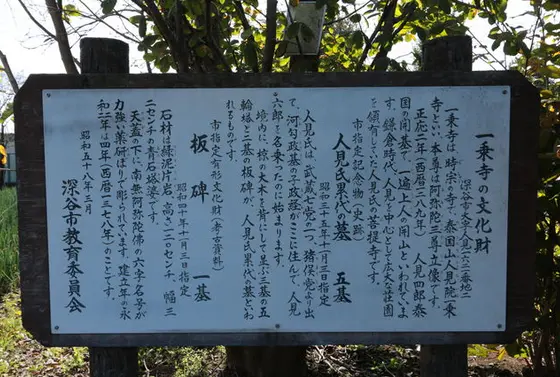 一乗寺の文化財
深谷市大字人見一六二番地二
一乗寺は、時宗の寺で、泰国山人見院一乗
寺といい、本尊は阿弥陀三尊立像です。
正応二年(西暦一二八九年)人見四郎泰
国の開基で、一遍上人の開山といわれていま
す。鎌倉時代、人見を中心として広大な荘園
を領有していた人見氏の菩提寺です。
市指定記念物(史跡)
人見氏累代の墓 五基
昭和三十五年十一月三日指定
人見氏は、武蔵七党の一つ、猪俣党より出
て、河匂政基の子政経がここに住んで、人見
六郎を名乗ったのに始まります。
境内に、椋の大木を背にして並ぶ三基の五
輪塔と二基の板碑が、人見氏累代の墓といわ
れるものです。
市指定有形文化財(考古資料)
板碑 一基
昭和四十年十一月三日指定
石材は緑泥片岩、高さ一二〇センチ 幅三
二センチの青石塔婆です。
天蓋の下に、南無阿弥陀佛の六字名号が
力強い薬研ぼりで彫られています。建立年の永
和二年は四年(西暦一三七八年)のことです。
昭和五十八年三月
深谷市教育委員会